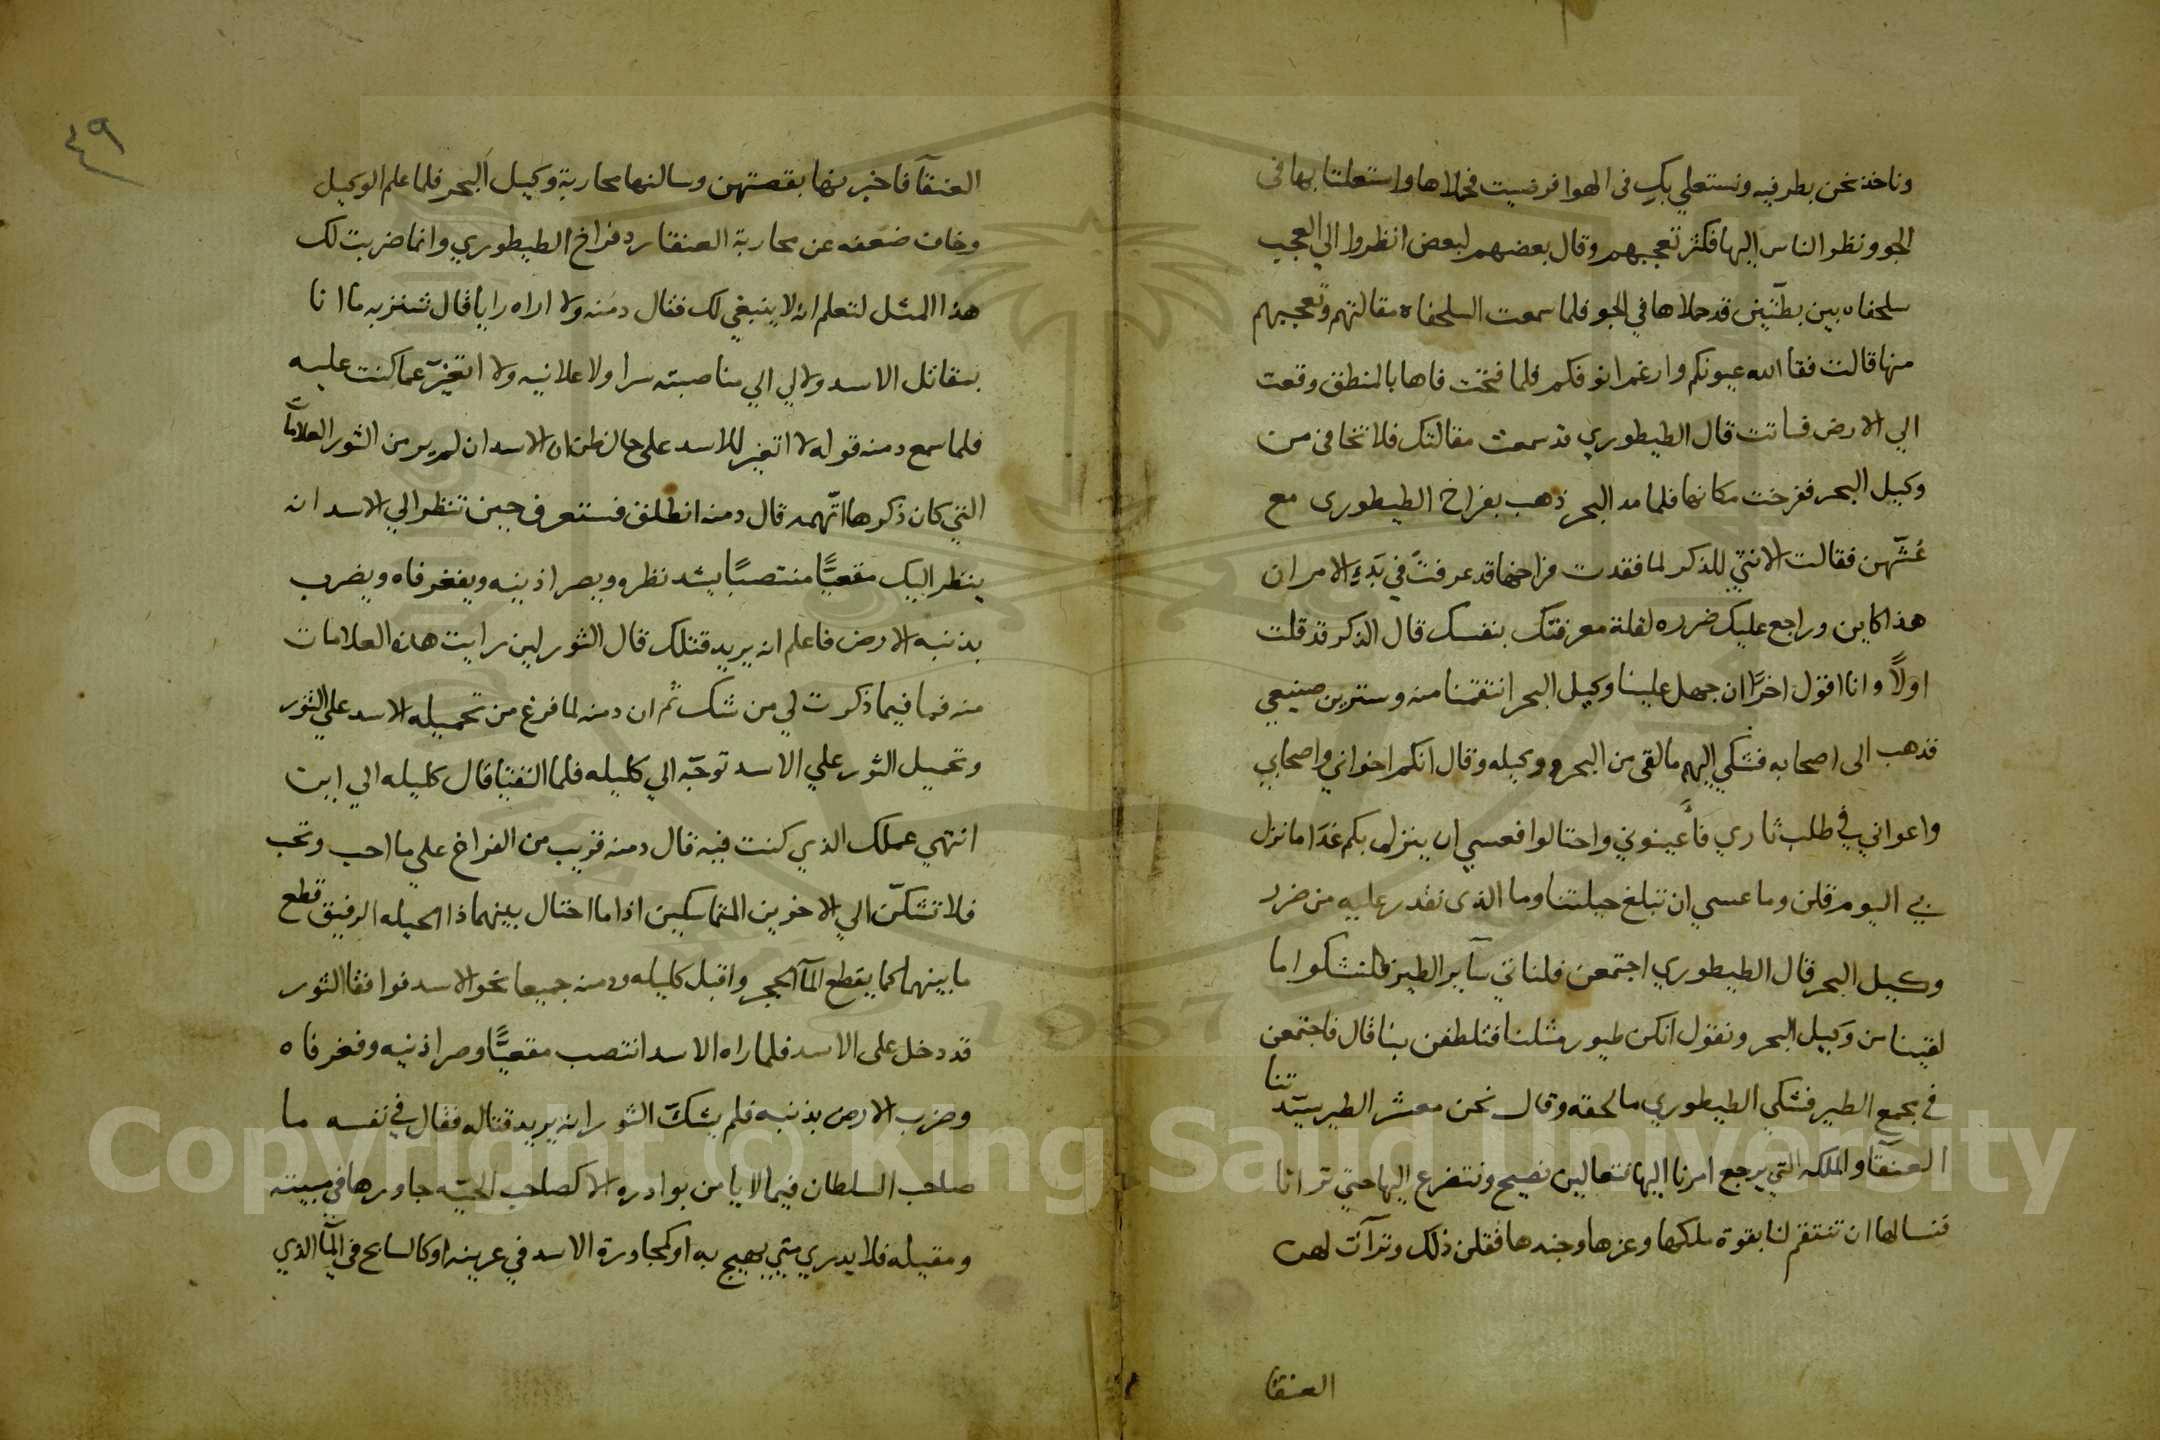 وناخذ نحن بطرفيه ونستعلي بك في الهوا فرضيت فحملاها واستعلتا بها في
الجو ونظر الناس اليها فكثر تعجبهم وقال بعضهم لبعض انظروا الي العجب
سلحفاه بين بطتين قد حملاها في الجو فلما سمعت السلحفاه مقالتهم وتعجبهم
منها قالت فقا الله عيونكم وارغم انوفكم فلما فتحت فاها بالمنطق وقعت
الي الارض فماتت قال الطيطوري قد سمعت مقالتك فلا تخافي من
وكيل البحر ففرخت مكانها فلما مد البحر ذهب بفراخ الطيطوري مع
عُشّهن فقالت الانثي للذكر لما فقدت فراخها قد عرفتُ في بَدءِ الامر ان
هذا كاين وراجع عليك ضرره لقلة معرفتك بنفسك قال الذكر قد قلت
اولاً وانا اقول اخرًا ان جهل علينا وكيل البحر انتقمنا منه وسترين صنيعي
فذهب الى اصحابه فشكي اليهم ما لقي من البحر ووكيله وقال انكم اخواني واصحابي
واعواني في طلب ثاري فأعينوني واحتالوا فعسي ان ينزل بكم غدًا ما نزل
بي اليوم قلن وما عسي ان تبلغ حيلتنا وما الذي نقدر عليه من ضرر
وكيل البحر قال الطيطوري اجتمعن فلناتي ساير الطير فلنشكوا ما
لقينا من وكيل البحر ونقول انكن طيور مثلنا فتلطفن بنا قال فاجتمعن
في مجمع الطير فشكي الطيطوري ما لحقه وقال نحن معشر الطير سيّدتنا
العنقآ والملكه التي يرجع امرنا اليها فتعالين نصيح ونتضرع اليها حتي ترانا
فنسالها ان تنتقم لنا بقوة ملكها وعزها وجندها فقلن ذلك وترآت لهن
العنقا
٤٩
العنقآ فاخبرنها بقصتهن وسالنها محاربة وكيل البحر فلما علم الوكيل
وخاف ضعفه عن محاربة العنقا رد فراخ الطيطوري وانما ضربت لك
هذا المثل لتعلم انه لا ينبغي لك فقال دمنه ولا اراه رايا قال شنزبه ما انا
بمقاتل الاسد ولا لي الي مناصبته سرا ولا علانيه ولا اتغيّر عما كنت عليه
فلما سمع دمنه قوله لا اتغير للاسد علي حال ظن ان الاسد ان لم ير من الثور العلامات
التي كان ذكرها اتّهمه قال دمنه انطلق فستعرف حين تنظر الي الاسد انه
ينظر اليك مقعيًّا منتصبًا يشد نظره ويصر اذنيه ويفغر فاه ويضرب
بذنبه الارض فاعلم انه يريد قتلك قال الثور لين رايت هذه العلامات
منه فما فيما ذكرت لي من شك ثم ان دمنه لما فرغ من تحميله الاسد علي الثور
وتحميل الثور علي الاسد توجّه الي كليله فلما التقيا قال كليله الي اين
انتهي عملك الذي كنت فيه قال دمنه قريب من الفراخ علي ما احب وتحب
فلا تشكّن الي الاخوين المتماسكين اذا ما احتال بينهما ذا الحيله الرفيق قطع
ما بينهما كما يقطع المآ الحجر واقبل كليله ودمنه جميعا نحو الاسد فوافقا الثور
قد دخل علي الاسد فلما راه الاسد انتصب مقعيًّا وصر اذنيه وفغر فاه
وضرب الارض بذنبه فلم يشكّ الثور انه يريد قتاله فقال في نفسه ما
صاحب السلطان فيما لا يامن بوادره الا كصاحب الحيّه جاورها في مبيته
ومقيله فلا يدري متي يهيج به او كمجاورة الاسد في عرينه او كالسابح في المآ الذي
Copyright © King Saud University
1957